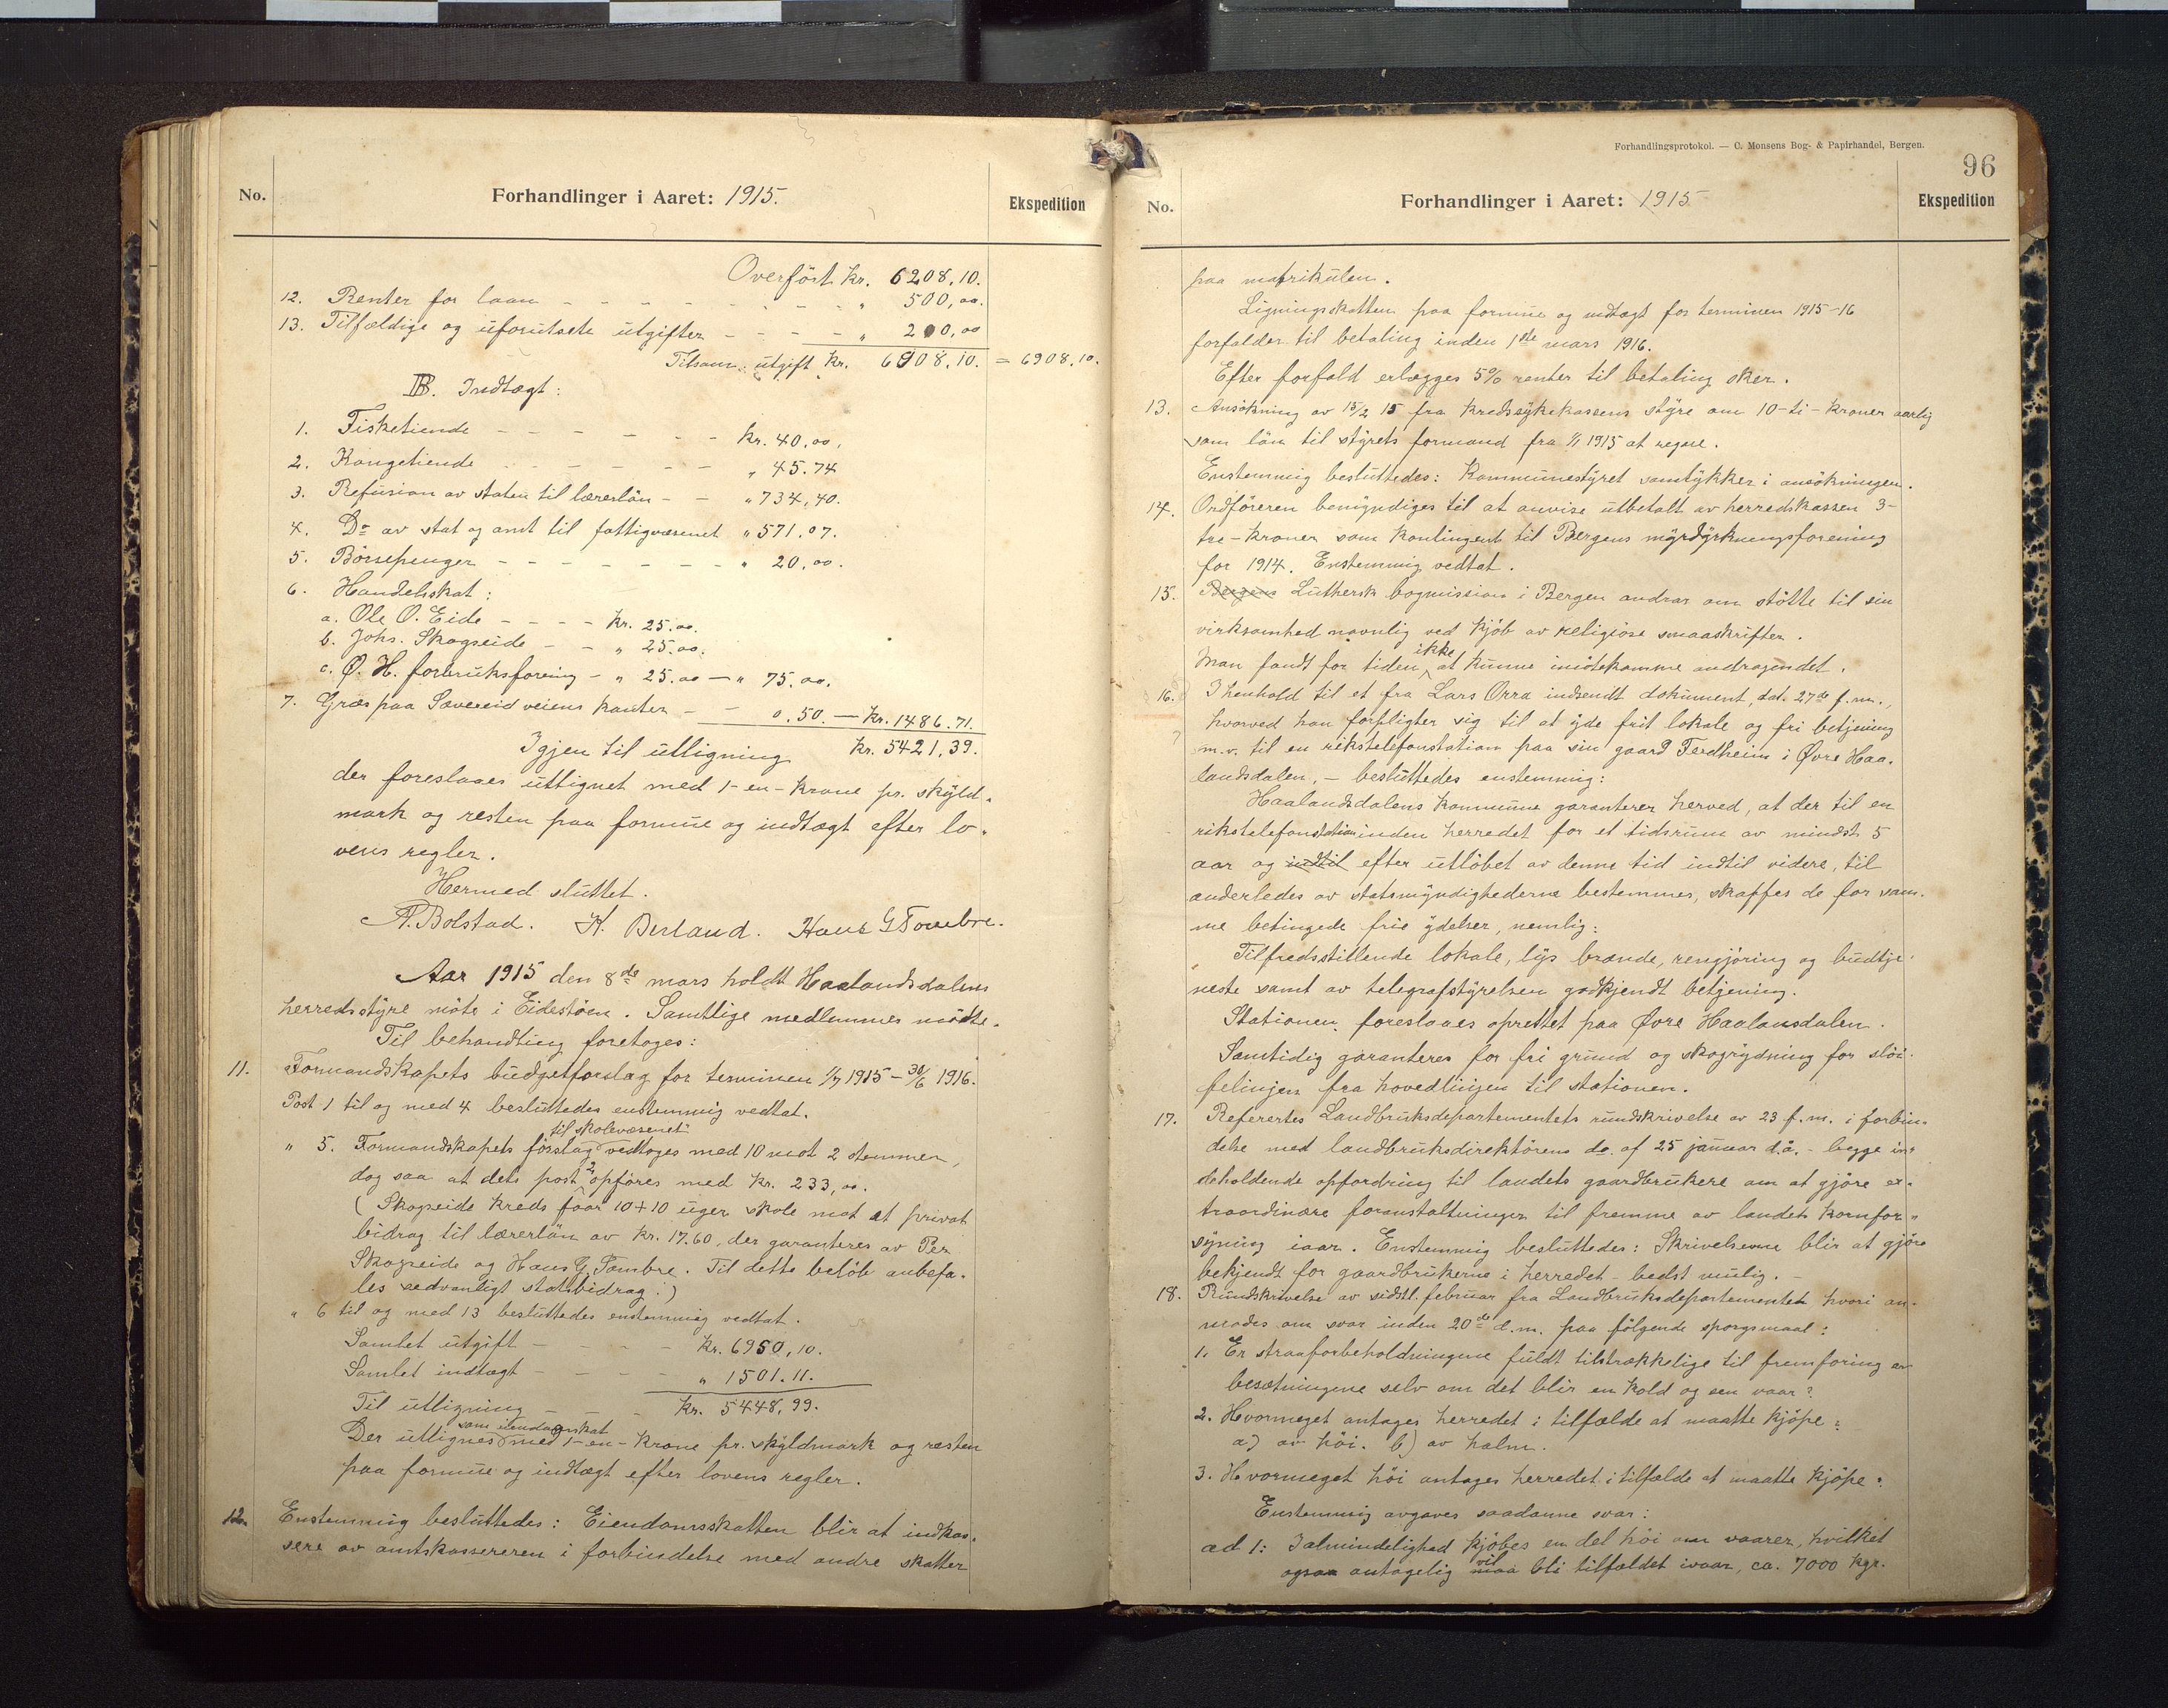 No.
Forhandlinger i Aaret: 1915.
Ekspedition
Overført kr. 6208,10.
12. Renter for laan - - - - - - - - " 500,00.
13. Tilfældige og uforutsete utgifter - - - - " 200,00
Tilsam. utgift kr. 6908,10. = 6908,10.
B. Indtægt:
1. Fisketiende - - - - - - - kr. 40,00.
2. Kongetiende - - - - - - " 45.74
3. Refusion av staten til lærerløn - - " 734,40.
4. Do av stat og amt til fattigvæsenet " 571.07.
5. Børsepenger - - - - - - - " 20,00.
6. Handelsskat:
a. Ole O. Eide - - - - kr. 25.00.
b. Johs. Skogseide - - " 25.00.
c. Ø. H. forbruksforening - " 25.00 - " 75.00.
7. Græs paa Sævereidveiens kanter - - 0.50. - Kr. 1486.71.
Igjen til utligning kr. 5421,39.
der foreslaaes utlignet med 1-en-krone pr. skyld-
mark og resten paa formue og indtægt efter lo-
vens regler.
Hermed sluttet.
A. Bolstad. H. Berland. Hans G Tombre.
Aar 1915 den 8de mars holdt Haalandsdalens
herredsstyre møte i Eidestøen. Samtlige medlemmer mødte.
Til behandling foretoges:
11. Formandskapets budgetforslag for terminen 1/7 1915 - 30/6 1916.
Post 1 til og med 4 besluttedes enstemmig vedtat.
til skolevæsenet
" 5. Formandskapets forslag vedtoges med 10 mot 2 stemmer,
dog saa at dets post 2 opføres med kr. 233,00.
(Skogseide kreds faar 10+10 uger skole mot at privat
bidrag til lærerløn av kr. 17.60, der garanteres av Per
Skogseide og Hans G. Tombre. Til dette beløb anbefa-
les sedvanligt statsbidrag.)
" 6 til og med 13 besluttedes enstemmig vedtat.
Samlet utgift - - - - kr. 6950,10.
Samlet indtægt - - - - " 1501.11.
Til utligning - - - kr. 5448,99.
som eiendomsskat
Der utlignes med 1-en-krone pr. skyldmark og resten
paa formue og indtægt efter lovens regler.
12. Enstemmig besluttedes: Eiendomsskatten blir at indkas-
sere av amtskassereren i forbindelse med andre skatter
Forhandlingsprotokol. — C. Monsens Bog- & Papirhandel, Bergen.
96
No.
Forhandlinger i Aaret: 1915
Ekspedition
paa matrikulen.
Ligningsskatten paa formue og indtægt for terminen 1915-16
forfalder til betaling inden 1ste mars 1916.
Efter forfald erlægges 5% renter til betaling sker.
13. Ansøkning av 15/2 15 fra kredssykekassens styre om 10-ti-kroner aarlig
som løn til styrets formand fra 1/1 1915 at regne.
Enstemmig besluttedes: Kommunestyret samtykker i ansøkningen.
14. Ordføreren bemyndiges til at anvise utbetalt av herredskassen 3-
tre-kroner som kontingent til Bergens myrdyrkningsforening
for 1914. Enstemmig vedtat.
15. Bergens Luthersk bogmission i Bergen andrar om støtte til sin
virksomhed navnlig ved kjøb av religiøse smaaskrifter.
ikke
Man fandt for tiden at kunne imøtekomme andragendet.
16. I henhold til et fra Lars Orra indsendt dokument, dat. 27de f.m.,
hvorved han forpligter sig til at yde frit lokale og fri betjening
m.v. til en rikstelefonstation paa sin gaard Ferdheim i Øvre Haa-
landsdalen, - besluttedes enstemmig:
Haalandsdalens kommune garanterer herved, at der til en
rikstelefonstation inden herredet for et tidsrum av mindst 5
aar og indtil efter utløbet av denne tid indtil videre, til
anderledes av statsmyndighederne bestemmes, skaffes de for sam-
me betingede frie ydelser, nemlig:
Tilfredsstillende lokale, lys brænde, rengjøring og budtje-
neste samt av telegrafstyrelsen godkjendt betjening.
Stationen foreslaaes oprettet paa Øvre Haalansdalen.
Samtidig garanteres for fri grund og skogrydning for sløi-
felinjen fra hovedlinjen til stationen.
17. Referertes Landbruksdepartementets rundskrivelse av 23 f.m. i forbin-
delse med landbruksdirektørens do. af 25 januar d.å. - begge in-
deholdende opfordring til landets gaardbrukere om at gjøre ex-
traordinære foranstaltninger til fremme av landets kornfor-
syning iaar. Enstemmig besluttedes: Skrivelserne blir at gjøre
bekjendt for gaardbrukerne i herredet - bedst mulig. -
18. Rundskrivelse av sidstl. februar fra Landbruksdepartementet hvori an-
modes om svar inden 20de d.m. paa følgende spørgsmaal:
1. Er straaforbeholdningene fuldt tilstrækkelige til fremforing av
besætningene selv om det blir en kold og sen vaar?
2. Hvormeget antages herredet i tilfælde at maatte kjøpe:
a) av høi. b) av halm.
3. Hvormeget høi antages herredet i tilfælde at maatte kjøpe:
Enstemmig avgaves saadanne svar:
ad 1: I almindelighed kjøbes en del høi om vaaren, hvilket
vil
ogsaa antagelig maa bli tilfældet ivaar, ca. 7000 kgr.